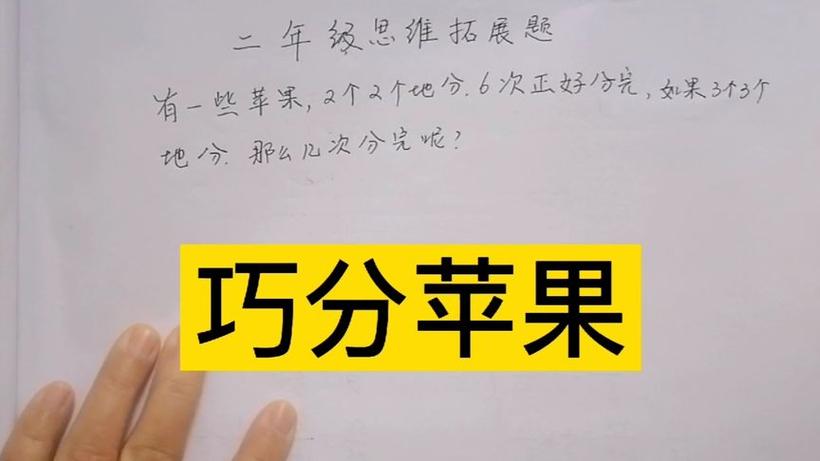 二年级思维拓展题
有一些苹果，2个2个地分．6次正好分完，如果3个3个
地分．那么几次分完呢？
巧分苹果